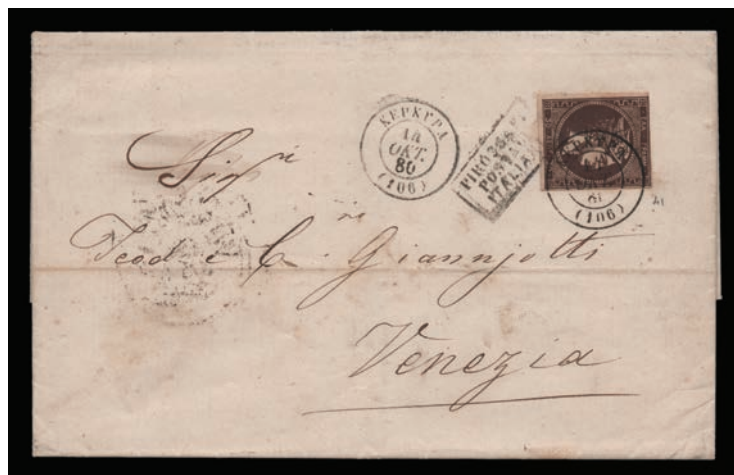 ΚΕΡΚΥΡΑ
14
ΟΚΤ.
80
(106)
PIROSCAFI
POSTALI
ITALIANI
ΚΕΡΚΥΡΑ
(106)
Sigri
Teod e C. Giannjotti
Venezia